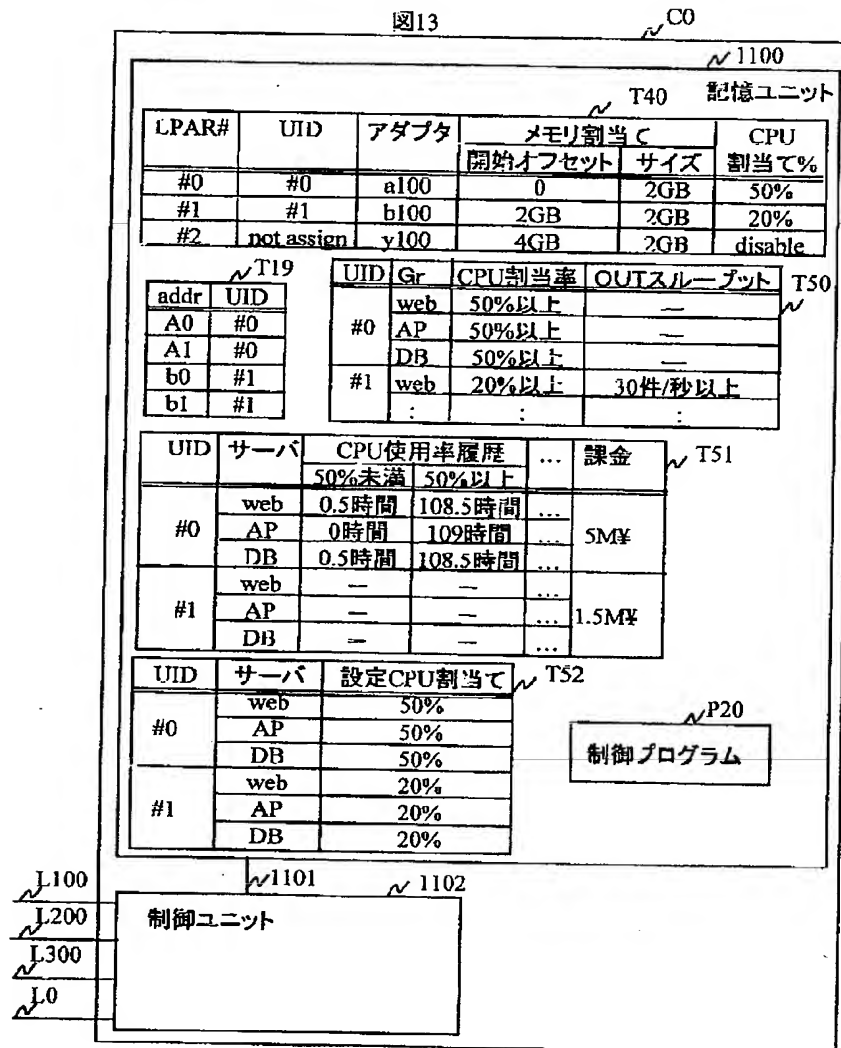 図13
C0
1100
T40 記憶ユニット
LPAR# UID アダプタ メモリ割当て CPU
開始オフセット サイズ 割当て%
#0 #0 a100 0 2GB 50%
#1 #1 b100 2GB 2GB 20%
#2 not assign y100 4GB 2GB disable
T19
addr UID
A0 #0
A1 #0
b0 #1
b1 #1
UID Gr CPU割当率 OUTスループット T50
#0 web 50%以上 —
AP 50%以上 —
DB 50%以上 —
#1 web 20%以上 30件/秒以上
: :
UID サーバ CPU使用率履歴 … 課金 T51
50%未満 50%以上
#0 web 0.5時間 108.5時間 … 5M¥
AP 0時間 109時間 …
DB 0.5時間 108.5時間 …
#1 web — — … 1.5M¥
AP — — …
DB — — …
UID サーバ 設定CPU割当て T52
#0 web 50%
AP 50%
DB 50%
#1 web 20%
AP 20%
DB 20%
P20
制御プログラム
1101
1102
制御ユニット
L100
L200
L300
L0